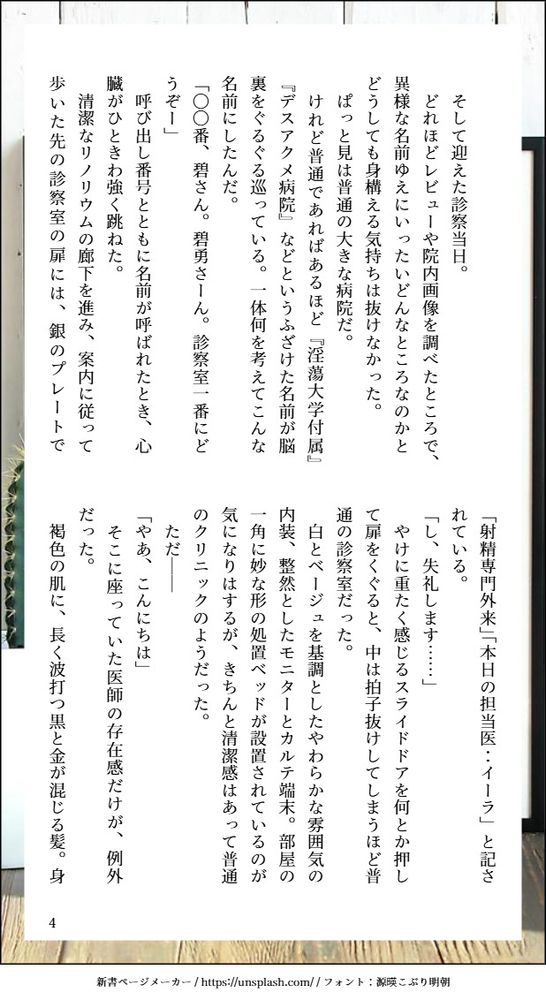 そして迎えた診察当日。
どれほどレビューや院内画像を調べたところで、
異様な名前ゆえにいったいどんなところなのかと
どうしても身構える気持ちは抜けなかった。
ぱっと見は普通の大きな病院だ。
けれど普通であればあるほど『淫蕩大学付属』
『デスアクメ病院』などというふざけた名前が脳
裏をぐるぐる巡っている。一体何を考えてこんな
名前にしたんだ。
「〇〇番、碧さん。碧勇さーん。診察室一番にど
うぞー」
呼び出し番号とともに名前が呼ばれたとき、心
臓がひときわ強く跳ねた。
清潔なリノリウムの廊下を進み、案内に従って
歩いた先の診察室の扉には、銀のプレートで
「射精専門外来」「本日の担当医：イーラ」と記さ
れている。
「し、失礼します……」
やけに重たく感じるスライドドアを何とか押し
て扉をくぐると、中は拍子抜けしてしまうほど普
通の診察室だった。
白とベージュを基調としたやわらかな雰囲気の
内装、整然としたモニターとカルテ端末。部屋の
一角に妙な形の処置ベッドが設置されているのが
気になりはするが、きちんと清潔感はあって普通
のクリニックのようだった。
ただ――
「やあ、こんにちは」
そこに座っていた医師の存在感だけが、例外
だった。
褐色の肌に、長く波打つ黒と金が混じる髪。身
4
新書ページメーカー / https://unsplash.com// フォント：源暎こぶり明朝